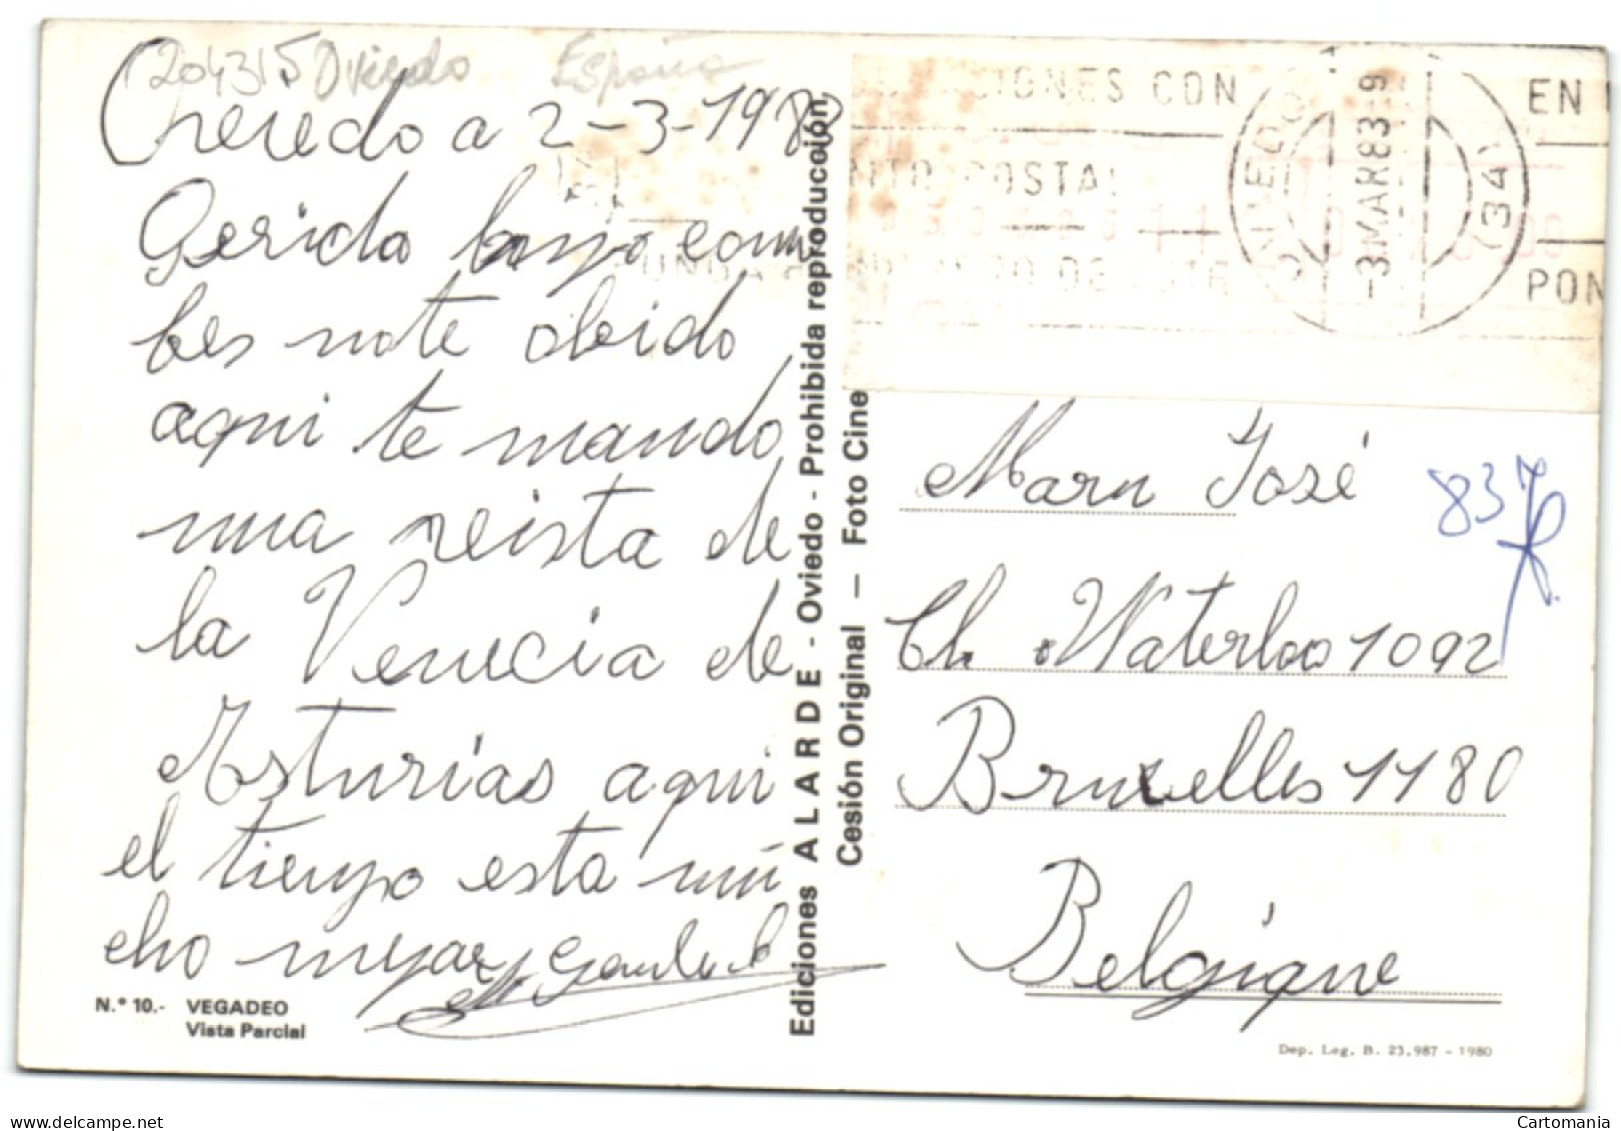 204315 Oviedo España
a 2-3-1983
Gerida como
bes note olvido
aqui te mando
una reista de
la Venecia de
Asturias aqui
el tiempo esta mu
cho mejor
N.º 10.- VEGADEO
Vista Parcial
Ediciones ALARDE - Oviedo - Prohibida reproducción
Cesión Original — Foto Cine
CIONES CON
POSTAL
OVIEDO
-3 MAR 83 - 9
(34)
EN
PON
Mary José
837
Ch. Waterloo 1092
Bruxelles 1180
Belgique
Dep. Leg. B. 23.987 - 1980
Cartomania